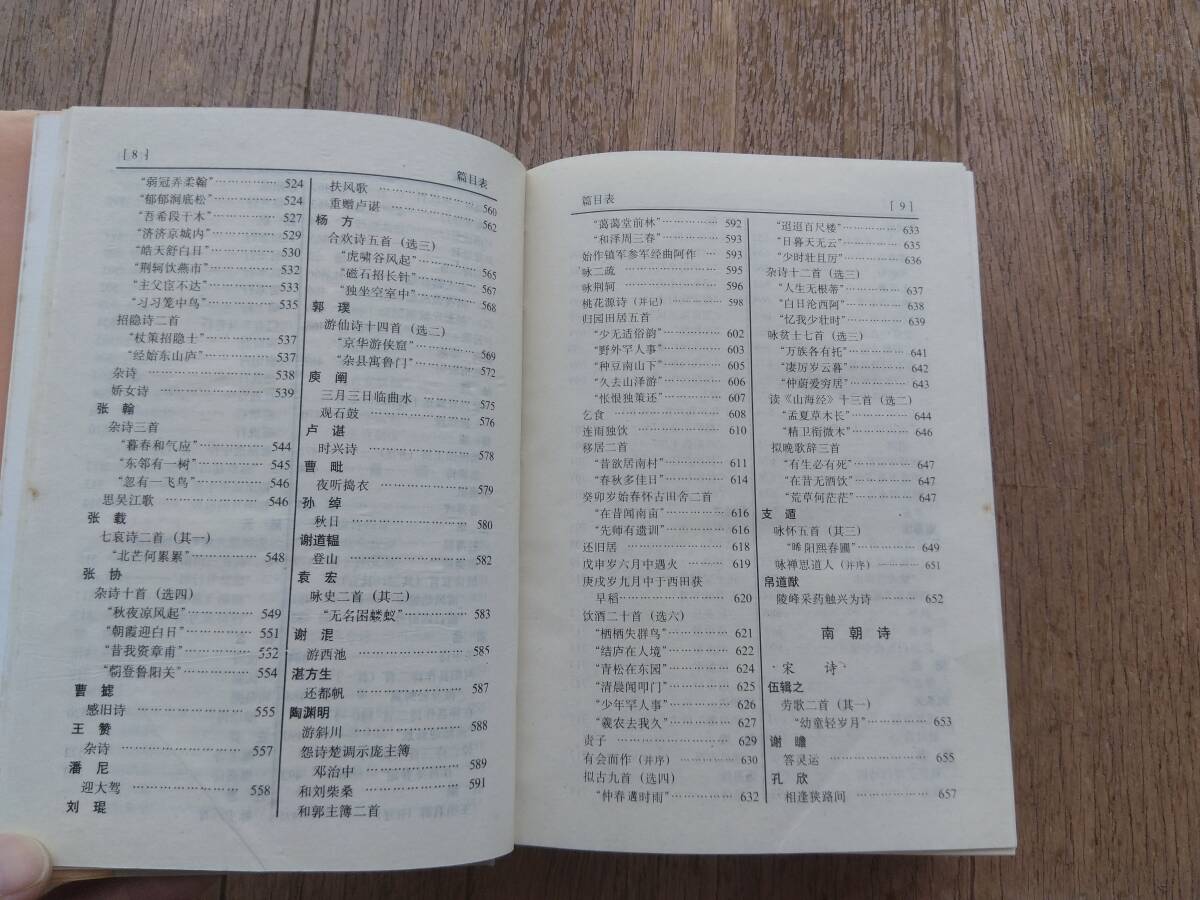 [8]
篇目表
“弱冠弄柔翰”……………524
“郁郁涧底松”……………524
“吾希段干木”……………527
“济济京城内”……………529
“皓天舒白日”……………530
“荆轲饮燕市”……………532
“主父宦不达”……………533
“习习笼中鸟”……………535
招隐诗二首
“杖策招隐士”……………537
“经始东山庐”……………537
杂诗……………538
娇女诗……………539
张翰
杂诗三首
“暮春和气应”……………544
“东邻有一树”……………545
“忽有一飞鸟”……………546
思吴江歌……………546
张载
七哀诗二首（其一）
“北芒何累累”……………548
张协
杂诗十首（选四）
“秋夜凉风起”……………549
“朝霞迎白日”……………551
“昔我资章甫”……………552
“朝登鲁阳关”……………554
曹摅
感旧诗……………555
王赞
杂诗……………557
潘尼
迎大驾……………558
刘琨
扶风歌……………560
重赠卢谌……………562
杨方
合欢诗五首（选三）
“虎啸谷风起”……………565
“磁石招长针”……………567
“独坐空室中”……………568
郭璞
游仙诗十四首（选二）
“京华游侠窟”……………569
“杂县寓鲁门”……………572
庾阐
三月三日临曲水……………575
观石鼓……………576
卢谌
时兴诗……………578
曹毗
夜听捣衣……………579
孙绰
秋日……………580
谢道韫
登山……………582
袁宏
咏史二首（其二）
“无名困蝼蚁”……………583
谢混
游西池……………585
湛方生
还都帆……………587
陶渊明
游斜川……………588
怨诗楚调示庞主簿
邓治中……………589
和刘柴桑……………591
和郭主簿二首
篇目表
[9]
“蔼蔼堂前林”……………592
“和泽周三春”……………593
始作镇军参军经曲阿作…593
咏二疏……………595
咏荆轲……………596
桃花源诗（并记）……………598
归园田居五首
“少无适俗韵”……………602
“野外罕人事”……………603
“种豆南山下”……………605
“久去山泽游”……………606
“怅恨独策还”……………607
乞食……………608
连雨独饮……………610
移居二首
“昔欲居南村”……………611
“春秋多佳日”……………614
癸卯岁始春怀古田舍二首
“在昔闻南亩”……………616
“先师有遗训”……………616
还旧居……………618
戊申岁六月中遇火……619
庚戌岁九月中于西田获
早稻……………620
饮酒二十首（选六）
“栖栖失群鸟”……………621
“结庐在人境”……………622
“青松在东园”……………624
“清晨闻叩门”……………625
“少年罕人事”……………626
“羲农去我久”……………627
责子……………629
有会而作（并序）……………630
拟古九首（选四）
“仲春遘时雨”……………632
“迢迢百尺楼”……………633
“日暮天无云”……………635
“少时壮且厉”……………636
杂诗十二首（选三）
“人生无根蒂”……………637
“白日沦西阿”……………638
“忆我少壮时”……………639
咏贫士七首（选三）
“万族各有托”……………641
“凄厉岁云暮”……………642
“仲蔚爱穷居”……………643
读《山海经》十三首（选二）
“孟夏草木长”……………644
“精卫衔微木”……………646
拟晚歌辞三首
“有生必有死”……………647
“在昔无酒饮”……………647
“荒草何茫茫”……………647
支遁
咏怀五首（其三）
“晞阳熙春圃”……………649
咏禅思道人（并序）……………651
帛道猷
陵峰采药触兴为诗……652
南朝诗
宋诗
伍辑之
劳歌二首（其一）
“幼童轻岁月”……………653
谢瞻
答灵运……………655
孔欣
相逢狭路间……………657